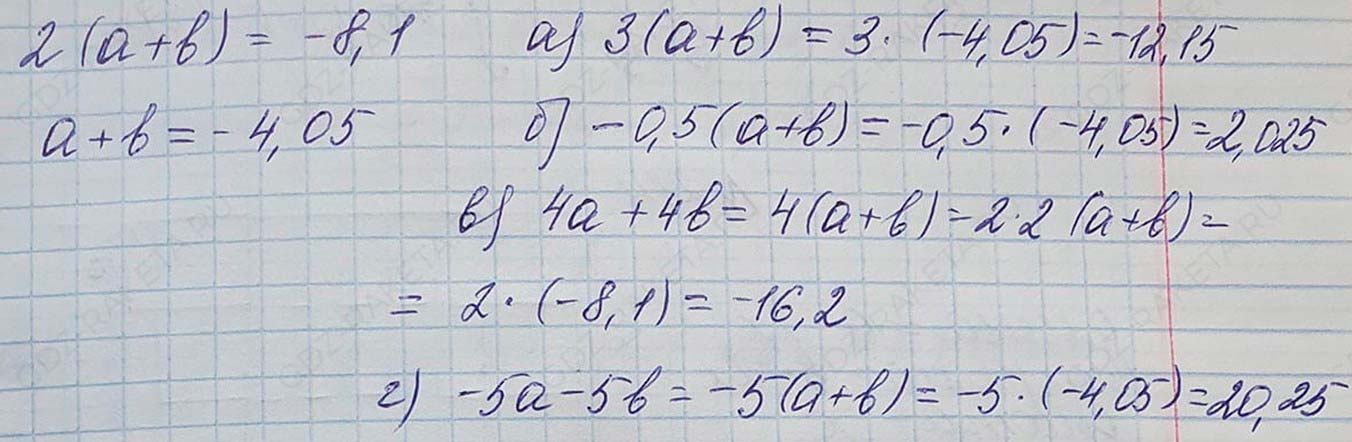 2(a+b) = -8,1
a+b = -4,05
а) 3(a+b) = 3·(-4,05) = -12,15
б) -0,5(a+b) = -0,5·(-4,05) = 2,025
в) 4a + 4b = 4(a+b) = 2·2(a+b) =
= 2·(-8,1) = -16,2
г) -5a - 5b = -5(a+b) = -5·(-4,05) = 20,25